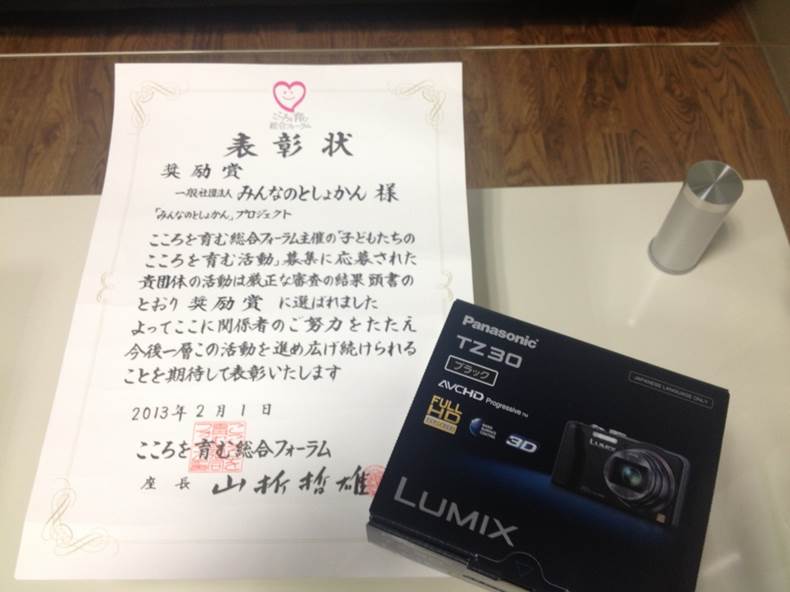 こころを育む
総合フォーラム
表彰状
奨励賞
一般社団法人 みんなのとしょかん 様
「みんなのとしょかん」プロジェクト
こころを育む総合フォーラム主催の「子どもたちの
こころを育む活動」募集に応募された
貴団体の活動は厳正な審査の結果頭書の
とおり 奨励賞 に選ばれました
よってここに関係者のご努力をたたえ
今後一層この活動を進め広げ続けられる
ことを期待して表彰いたします
2013年2月1日
こころを育む総合フォーラム
座長 山折哲雄
Panasonic
TZ30
ブラック
JAPANESE LANGUAGE ONLY
AVCHD Progressive™
FULL
HD
3D
LUMIX
LUMIX